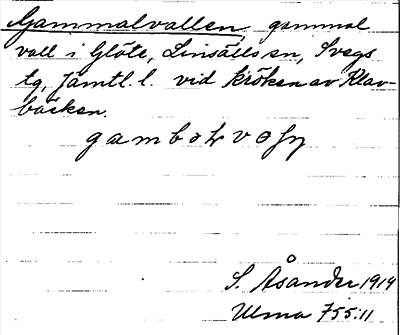 Gammalvallen, gammal
vall i Glöte, Linsälls sn, Svegs
tg, Jämtl. l. vid kröken av Klav-
bäcken.
S. Åsander 1919
Ulma 755:11